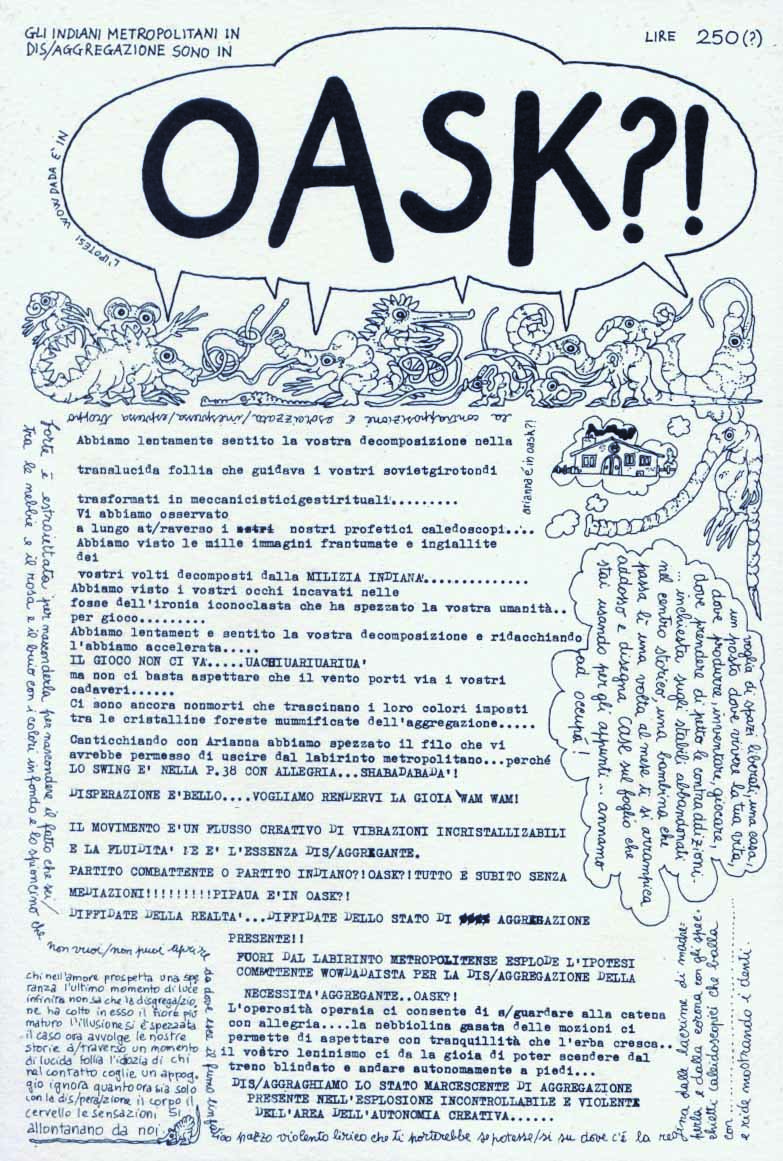 GLI INDIANI METROPOLITANI IN
DIS/AGGREGAZIONE SONO IN
LIRE 250(?)
OASK?!
L'IPOTESI WOWDADA E' IN
la contrapposizione è esorcizzata/inespressa/espressa troppo
forte è estraiettata per nasconderla per nascondere il fatto che sei/
tra le nebbie e il rosa e il buio con i colori in fondo e lo sponcino che
non vuoi/non puoi aprire
Abbiamo lentamente sentito la vostra decomposizione nella
translucida follia che guidava i vostri sovietgirotondi
trasformati in meccanicisticigestirituali.........
Vi abbiamo osservato
a lungo at/raverso i nostri profetici caledoscopi....
Abbiamo visto le mille immagini frantumate e ingiallite
dei
vostri volti decomposti dalla MILIZIA INDIANA..............
Abbiamo visto i vostri occhi incavati nelle
fosse dell'ironia iconoclasta che ha spezzato la vostra umanità..
per gioco.........
Abbiamo lentament e sentito la vostra decomposizione e ridacchiando
l'abbiamo accelerata.....
IL GIOCO NON CI VA'.....UACHIUARIUARIUA'
ma non ci basta aspettare che il vento porti via i vostri
cadaveri......
Ci sono ancora nonmorti che trascinano i loro colori imposti
tra le cristalline foreste mummificate dell'aggregazione.....
Canticchiando con Arianna abbiamo spezzato il filo che vi
avrebbe permesso di uscire dal labirinto metropolitano...perché
LO SWING E' NELLA P.38 CON ALLEGRIA...SHABADABADA'!
DISPERAZIONE E'BELLO....VOGLIAMO RENDERVI LA GIOIA WAM WAM!
IL MOVIMENTO E'UN FLUSSO CREATIVO DI VIBRAZIONI INCRISTALLIZABILI
E LA FLUIDITA' NE E' L'ESSENZA DIS/AGGREGANTE.
PARTITO COMBATTENTE O PARTITO INDIANO?!OASK?!TUTTO E SUBITO SENZA
MEDIAZIONI!!!!!!!!!PIPAUA E'IN OASK?!
DIFFIDATE DELLA REALTA'...DIFFIDATE DELLO STATO DI AGGREGAZIONE
PRESENTE!!
FUORI DAL LABIRINTO METROPOLITENSE ESPLODE L'IPOTESI
COMBATTENTE WOWDADAISTA PER LA DIS/AGGREGAZIONE DELLA
NECESSITA'AGGREGANTE..OASK?!
L'operosità operaia ci consente di s/guardare alla catena
con allegria....la nebbiolina gasata delle mozioni ci
permette di aspettare con tranquillità che l'erba cresca..
il vostro leninismo ci da la gioia di poter scendere dal
treno blindato e andare autonomamente a piedi...
DIS/AGGRAGHIAMO LO STATO MARCESCENTE DI AGGREGAZIONE
PRESENTE NELL'ESPLOSIONE INCONTROLLABILE E VIOLENTA
DELL'AREA DELL'AUTONOMIA CREATIVA......
arianna è in oask?!
voglia di spazi liberati, una casa,
un posto dove vivere la tua vita,
dove produrre, inventare, giocare,
dove prendere di petto le contraddizioni..
... inchiesta sugli stabili abbandonati
nel centro storico una bambina che
passa lì una volta al mese ti si arrampica
addosso e disegna case sul foglio che
stai usando per gli appunti... annamo
ad occupà!
chi nell'amore prospetta una spe
ranza l'ultimo momento di luce
infinita non sa che la disgregazio
ne ha colto in esso il fiore più
maturo l'illusione si è spezzata
il caso ora avvolge le nostre
storie a/traverso un momento
di lucida follia l'idozia di chi
nel contatto coglie un appog
gio ignora quanto ora sia solo
con la dis/perazione il corpo il
cervello le sensazioni si
allontanano da noi
da dove esce il fumo
pazzo violento lirico che ti porterebbe se potesse/si su dove c'è la re
gina dalle lacrime di madre
perla e dalla corona con gli spec
chietti caleidoscopici che balla
con ....................
e ride mostrando i denti